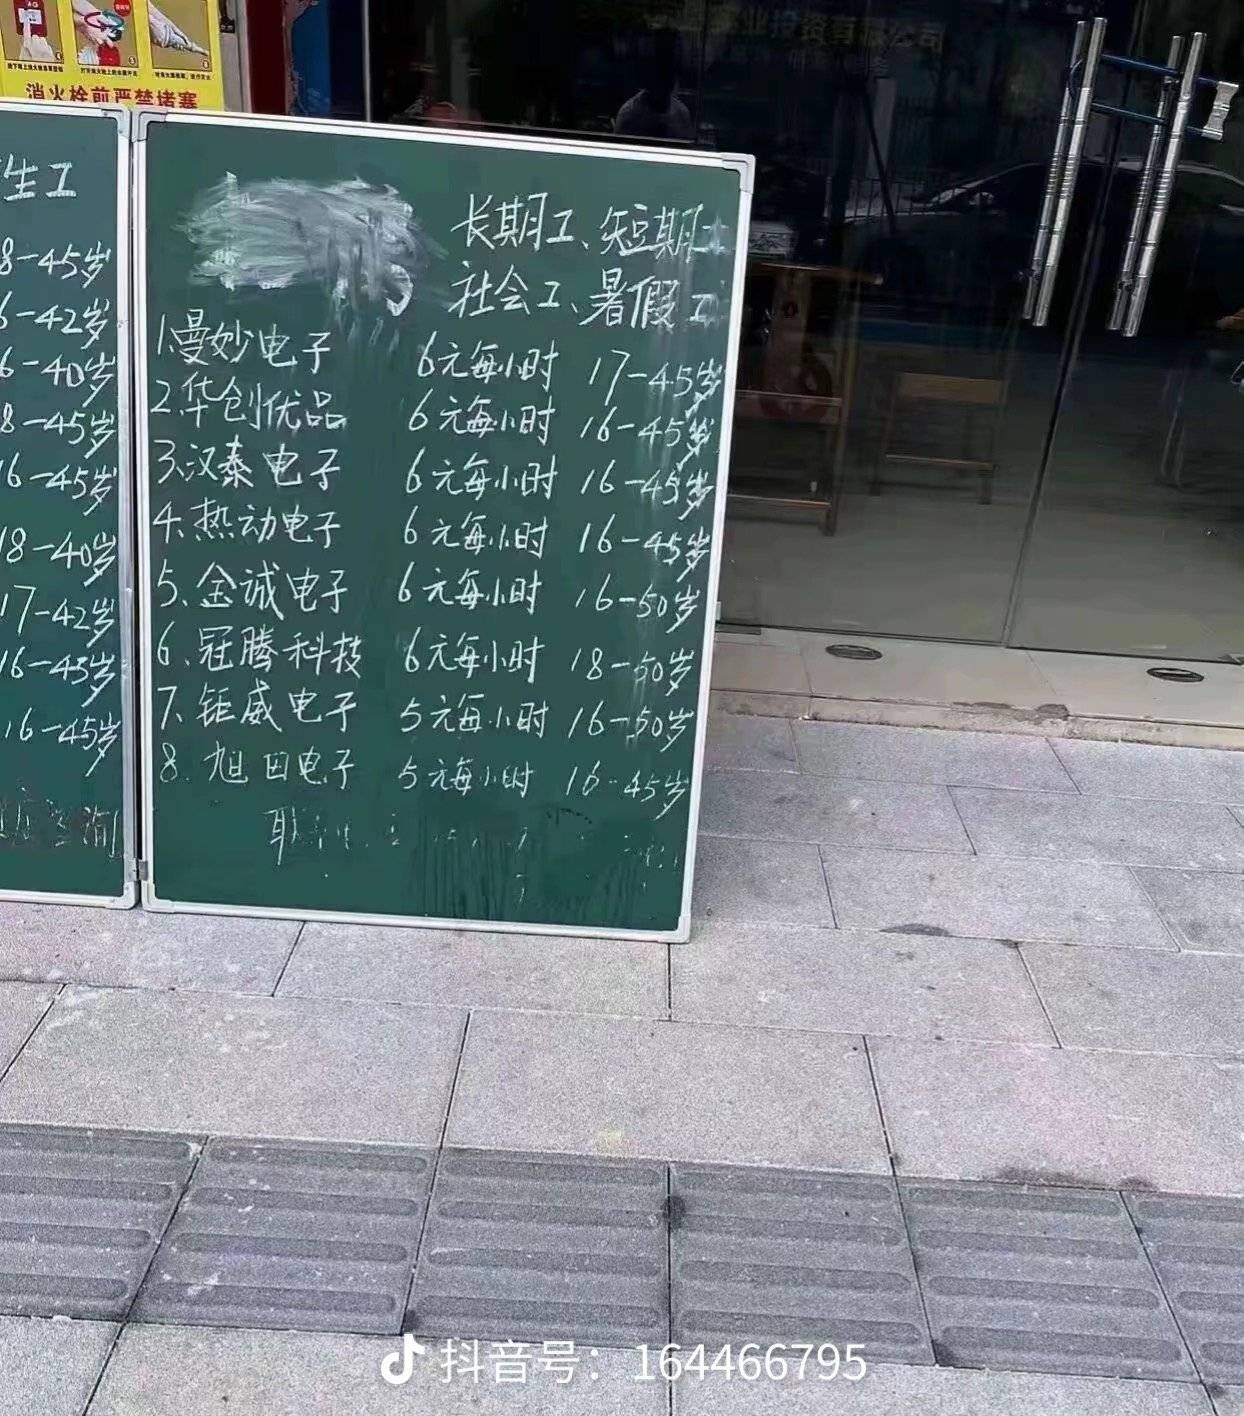 消火栓前严禁堵塞
生工
8-45岁
6-42岁
6-40岁
8-45岁
16-45岁
18-40岁
17-42岁
16-45岁
16-45岁
长期工、短期工
社会工、暑假工
1.曼妙电子 6元每小时 17-45岁
2.华创优品 6元每小时 16-45岁
3.汉泰电子 6元每小时 16-45岁
4.热动电子 6元每小时 16-45岁
5.金诚电子 6元每小时 16-50岁
6.冠腾科技 6元每小时 18-50岁
7.钜威电子 5元每小时 16-50岁
8.旭田电子 5元每小时 16-45岁
抖音号：164466795